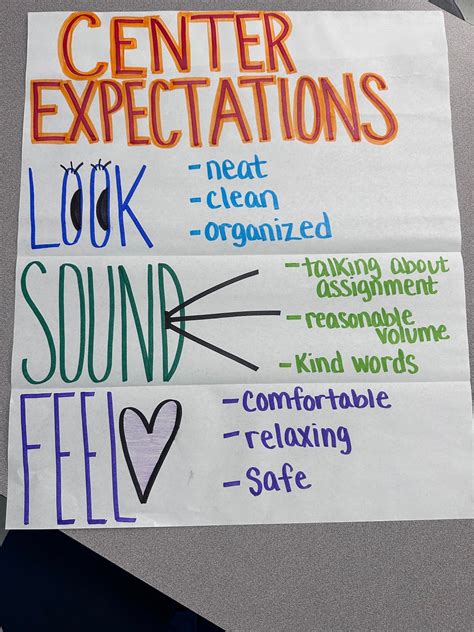 CENTER
EXPECTATIONS
LOOK
-neat
-clean
-organized
SOUND
-talking about
assignment
-reasonable
volume
-Kind words
FEEL
-Comfortable
-relaxing
-Safe